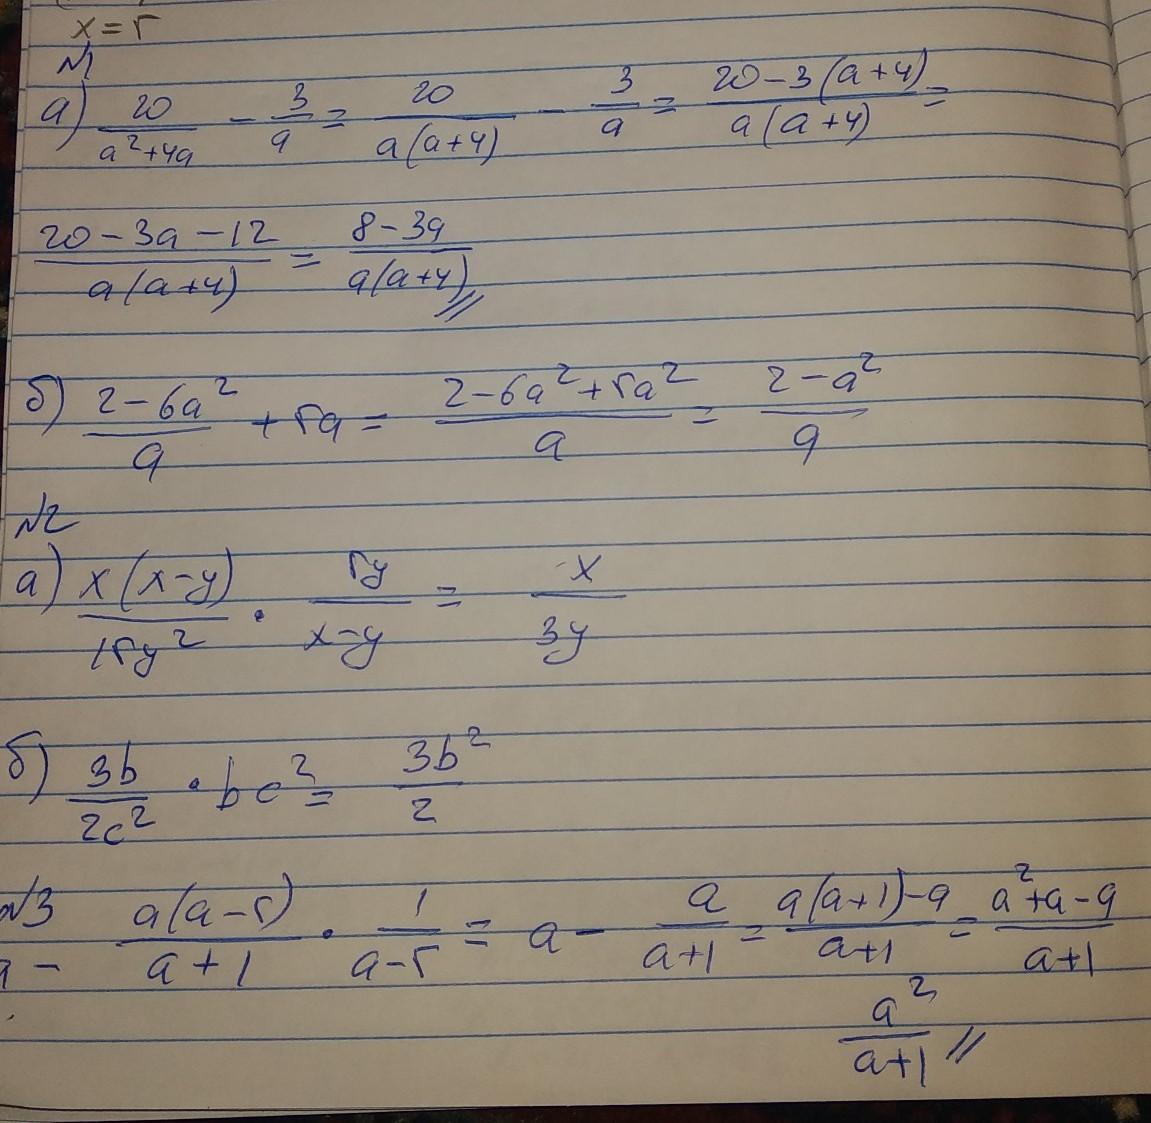 x = 5
№1
а) 20/(a²+4a) - 3/a = 20/(a(a+4)) - 3/a = (20-3(a+4))/(a(a+4)) =
(20-3a-12)/(a(a+4)) = (8-3a)/(a(a+4))
б) (2-6a²)/a + 5a = (2-6a²+5a²)/a = (2-a²)/a
№2
а) x(x-y)/(15y²) · 5y/(x-y) = x/(3y)
б) 3b/(2c²) · bc² = 3b²/2
№3
a - a(a-5)/(a+1) · 1/(a-5) = a - a/(a+1) = (a(a+1)-a)/(a+1) = (a²+a-a)/(a+1)
a²/(a+1)